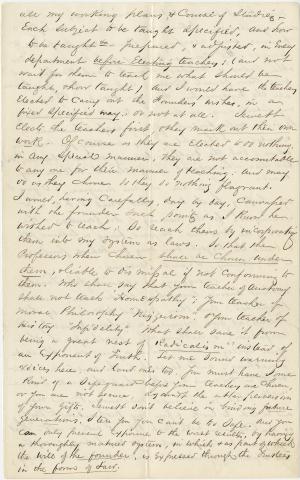 all my working plans & Course of Studies -
Each subject to be taught specified, and how
to be taught prepared, & adjusted, in Every
department before Electing teachers; (and not
wait for them to teach me what should be
taught, & how taught,) and I would have the teachers
Elected to carry out the Founders wishes, in a
fixed specified way; or not at all.
Elects the teachers first, they mark out their own
work. Of course as they are Elected to do nothing
in any special manner, they are not accountable
to any one for their manner of teaching. And may
do as they choose so they do nothing flagrant.
I would, having carefully, day by day, canvassed
with the founder each point as I knew he
wished to teach, by incorporating
them into my System as laws. So that the
Professors when chosen shall be chosen under
them, & liable to dismissal if not conforming to
them. Who shall say that your teacher of anatomy
shall not teach "Homeopathy"; your teacher of
moral Philosophy " or your teacher of
history "Infidelity" What shall save it from
being a great nest of "Radicalism" instead of
an Exponent of Truth. Let me sound warning
voices here, and loud ones too. You must have some
kind of a Safeguard before your teachers are chosen,
or you are not secure against the utter perversion
of your gifts. Vermont don't believe in binding future
generations. I tell you you can't be too safe. And you
can only prevent exposure to the worst results, by having
a thoroughly matured system, in which & as part of which
the will of the founder, is expressed through the Trustees
in the form of Law.